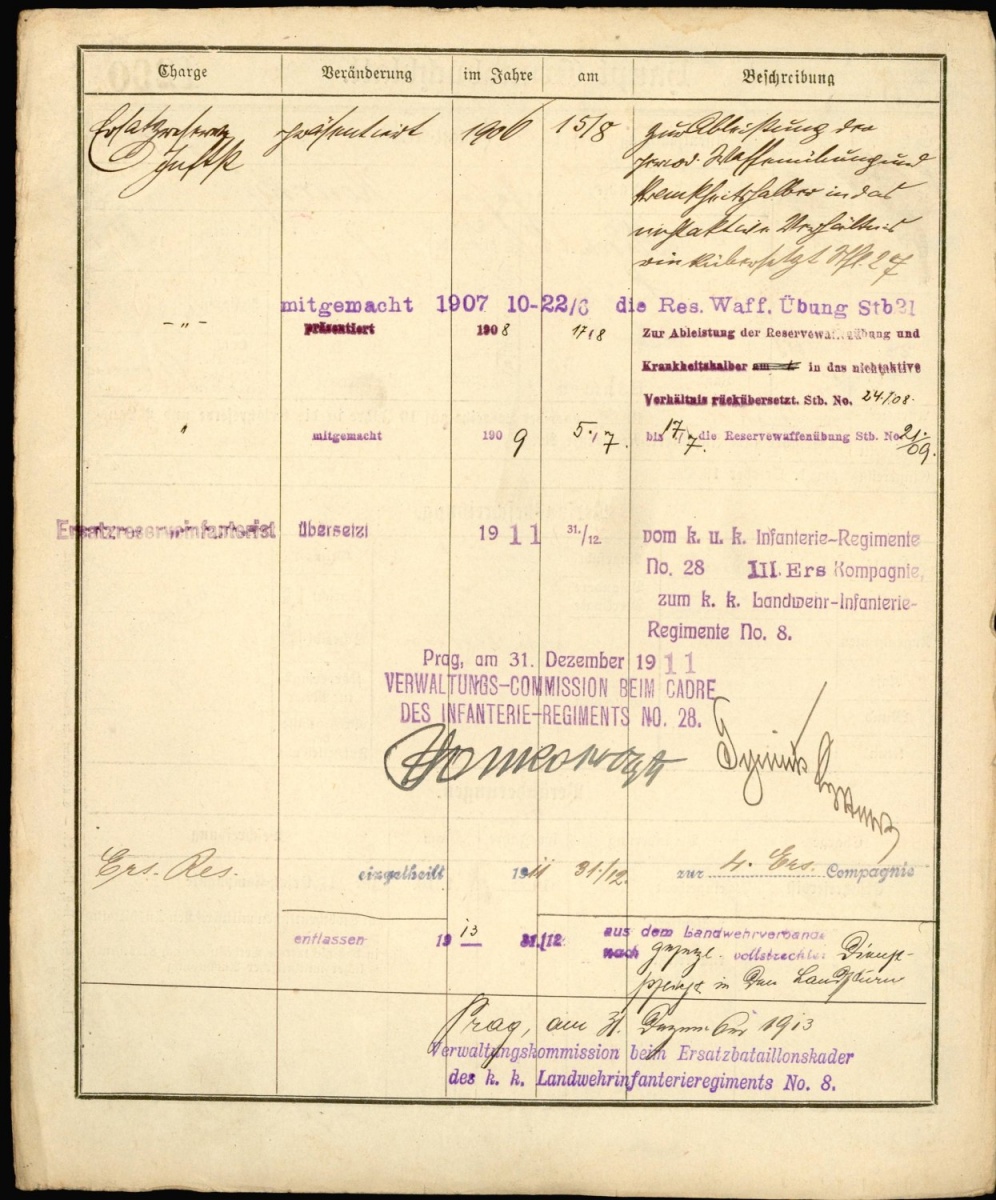 Charge Veränderung im Jahre am Beschreibung
Ersatzreserve präsentiert 1906 15/8 zur Ableistung der
Inftst period. Waffenübung und
Krankheitshalber in das
nichtaktive Verhältnis
rückübersetzt
mitgemacht 1907 10-22/6 die Res. Waff. Übung Stb 31
-"- präsentiert 1908 17/8 Zur Ableistung der Reservewaffenübung und
Krankheitshalber in das nichtaktive
Verhältnis rückübersetzt. Stb. No. 24/08.
" mitgemacht 1909 5./7. bis 17./7. die Reservewaffenübung Stb. No 21./09.
Ersatzreserveinfanterist übersetzt 1911 31./12. vom k. u. k. Infanterie-Regimente
No. 28 III. Ers Kompagnie,
zum k. k. Landwehr-Infanterie-
Regimente No. 8.
Prag, am 31. Dezember 1911
VERWALTUNGS-COMMISSION BEIM CADRE
DES INFANTERIE-REGIMENTS NO. 28.
Ers. Res. eingetheilt 1911 31./12. zur 4. Ers. Compagnie
entlassen 1913 31./12. aus dem Landwehrverbande
nach gesetzl. vollstreckter Dienst-
pflicht in den Landsturm
Prag, am 31. Dezember 1913
Verwaltungskommission beim Ersatzbataillonskader
des k. k. Landwehrinfanterieregiments No. 8.